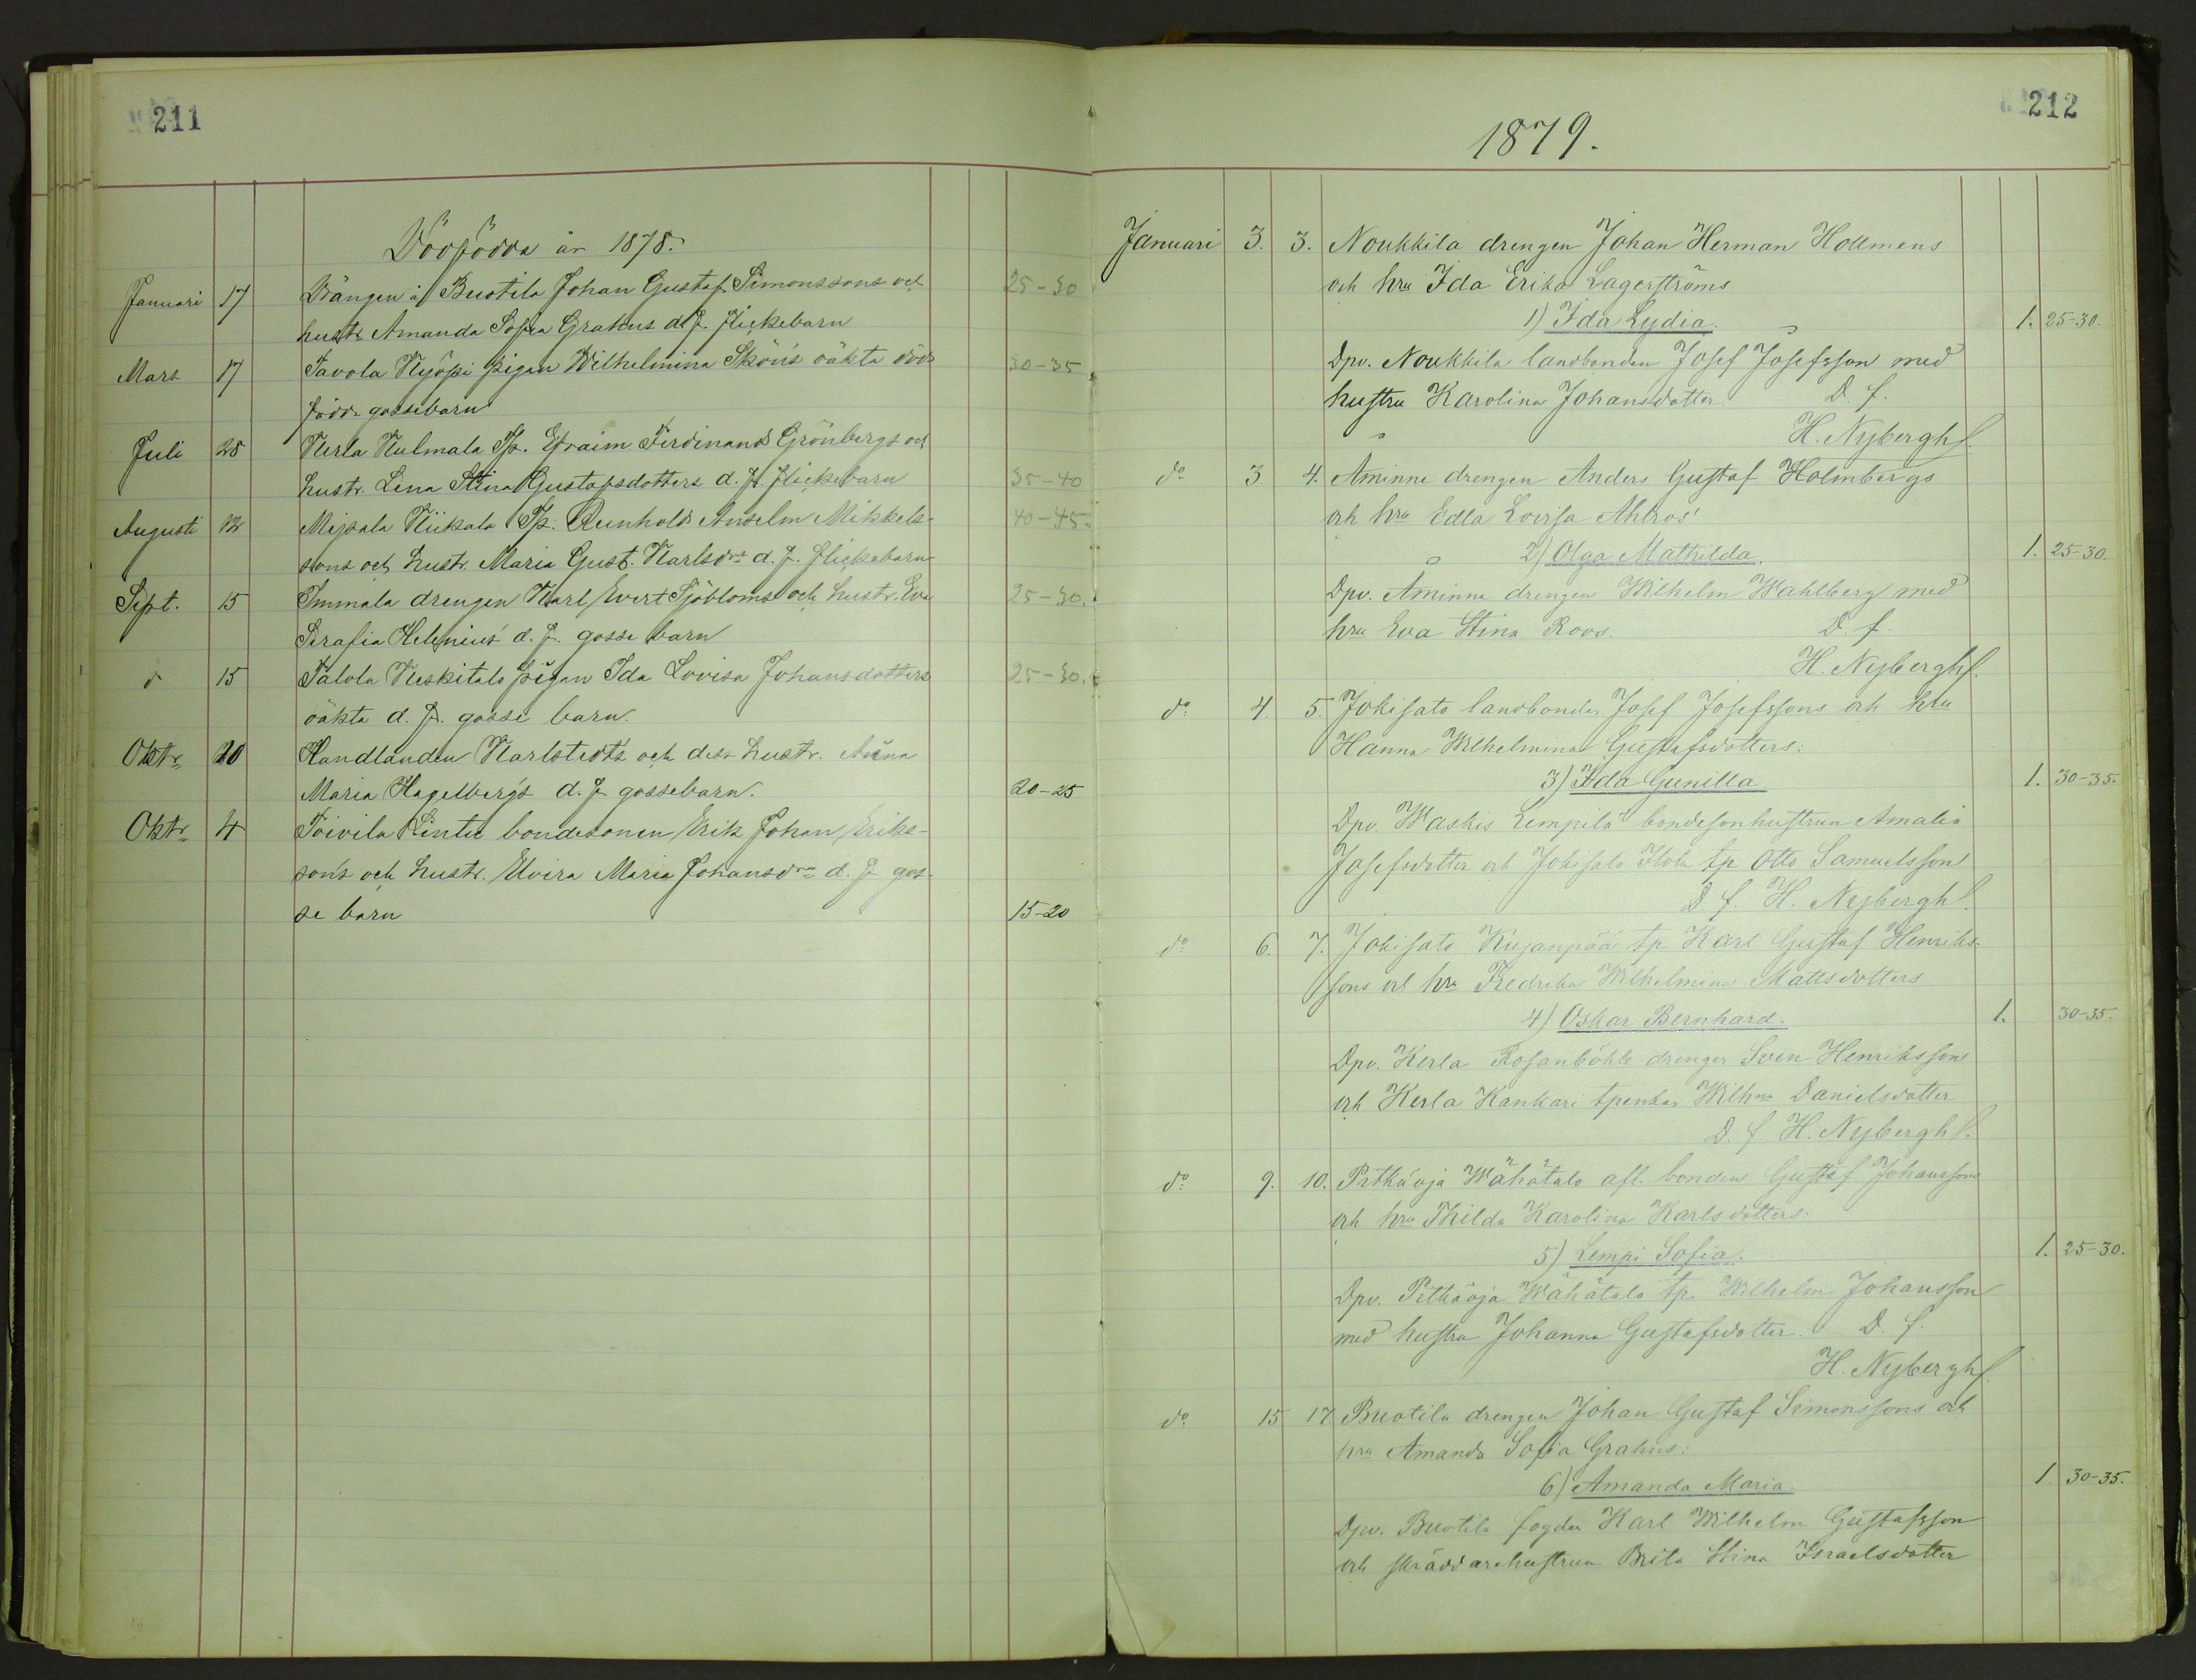 211
Dödfödda år 1878.
Januari 17 Drängen å Buotila Johan Gustaf Simonssons och 25-30
hustr Amanda Sofia Grahns d.f. flickebarn
Mars 17 Tavola Nyöpi pigan Wilhelmina Sköns oäkta död- 30-35
födde gossebarn
Juli 28 Kerla Kulmala Tp. Efraim Ferdinands Grönbergs och
hustr. Lena Stina Gustafsdotters d.f. flickebarn 35-40
Augusti 12 Mijsala Kiikala Tp. Reinholds Anselm Mikkels- 40-45.
sons och hustr. Maria Gust. Karlsdrs d.f. flickebarn
Sept. 15 Immala drengen Karl Evert Sjöbloms och hustr. Eva 25-30.
Serafia Helenius' d.f. gosse barn
d 15 Talola Keskitalo pigan Ida Lovisa Johansdotters 25-30.
oäkta d.f. gosse barn.
Oktr 20 Handlanden Karlstedts och dess hustr. Anna
Maria Hagelberg's d.f gossebarn. 20-25
Oktr 4 Toivila Lintu bondesonen Erik Johan Eriks-
sons och hustr. Elvira Maria Johansdrs d.f gos-
se barn 15-20
212
1879.
Januari 3. 3. Noukkila drengen Johan Herman Hollmens
och hru Ida Erika Lagerströms
1) Ida Lydia. 1. 25-30.
Dpv. Noukkila landbonden Josef Josefsson med
hustru Karolina Johansdotter. D. f.
H. Nybergh
do 3 4. Aminne drengen Anders Gustaf Holmbergs
och hru Edla Lovisa Ahlros'
2) Olga Mathilda. 1. 25-30
Dpv. Aminne drengen Wilhelm Wahlberg med
hru Eva Stina Roos. D. f.
H. Nybergh.
do 4. 5. Jokisato landbonden Josef Josefssons och hru
Hanna Wilhelmina Gustafsdotters:
3) Ida Gunilla 1. 30-35.
Dpv. Waskis Lempilä bondesonhustrun Amalia
Josefsdotter och Jokisato Ilola tp Otto Samuelsson
D. f. H. Nybergh.
do 6. 7. Jokisato Kujanpää tp Karl Gustaf Henriks-
sons och hru Fredrika Wilhelmina Mattsdotters
4) Oskar Bernhard. 1. 30-35.
Dpv. Kerla Rosanböhle drengen Sven Henriksson
och Kerla Kankari tpenkan Wilhna Danielsdotter
D. f. H. Nybergh.
do 9. 10. Pitkäoja Wähätalo afl. bonden Gustaf Johanssons
och hru Thilda Karolina Karlsdotters.
5) Lempi Sofia. 1. 25-30.
Dpv. Pitkäoja Wähätalo tp. Wilhelm Johansson
med hustru Johanna Gustafsdotter. D. f.
H. Nybergh
do 15 17 Buotila drengen Johan Gustaf Simonssons och
hru Amanda Sofia Grahns:
6) Amanda Maria. 1. 30-35.
Dpv. Buotila fogden Karl Wilhelm Gustafsson
och skräddarehustrun Brita Stina Israelsdotter